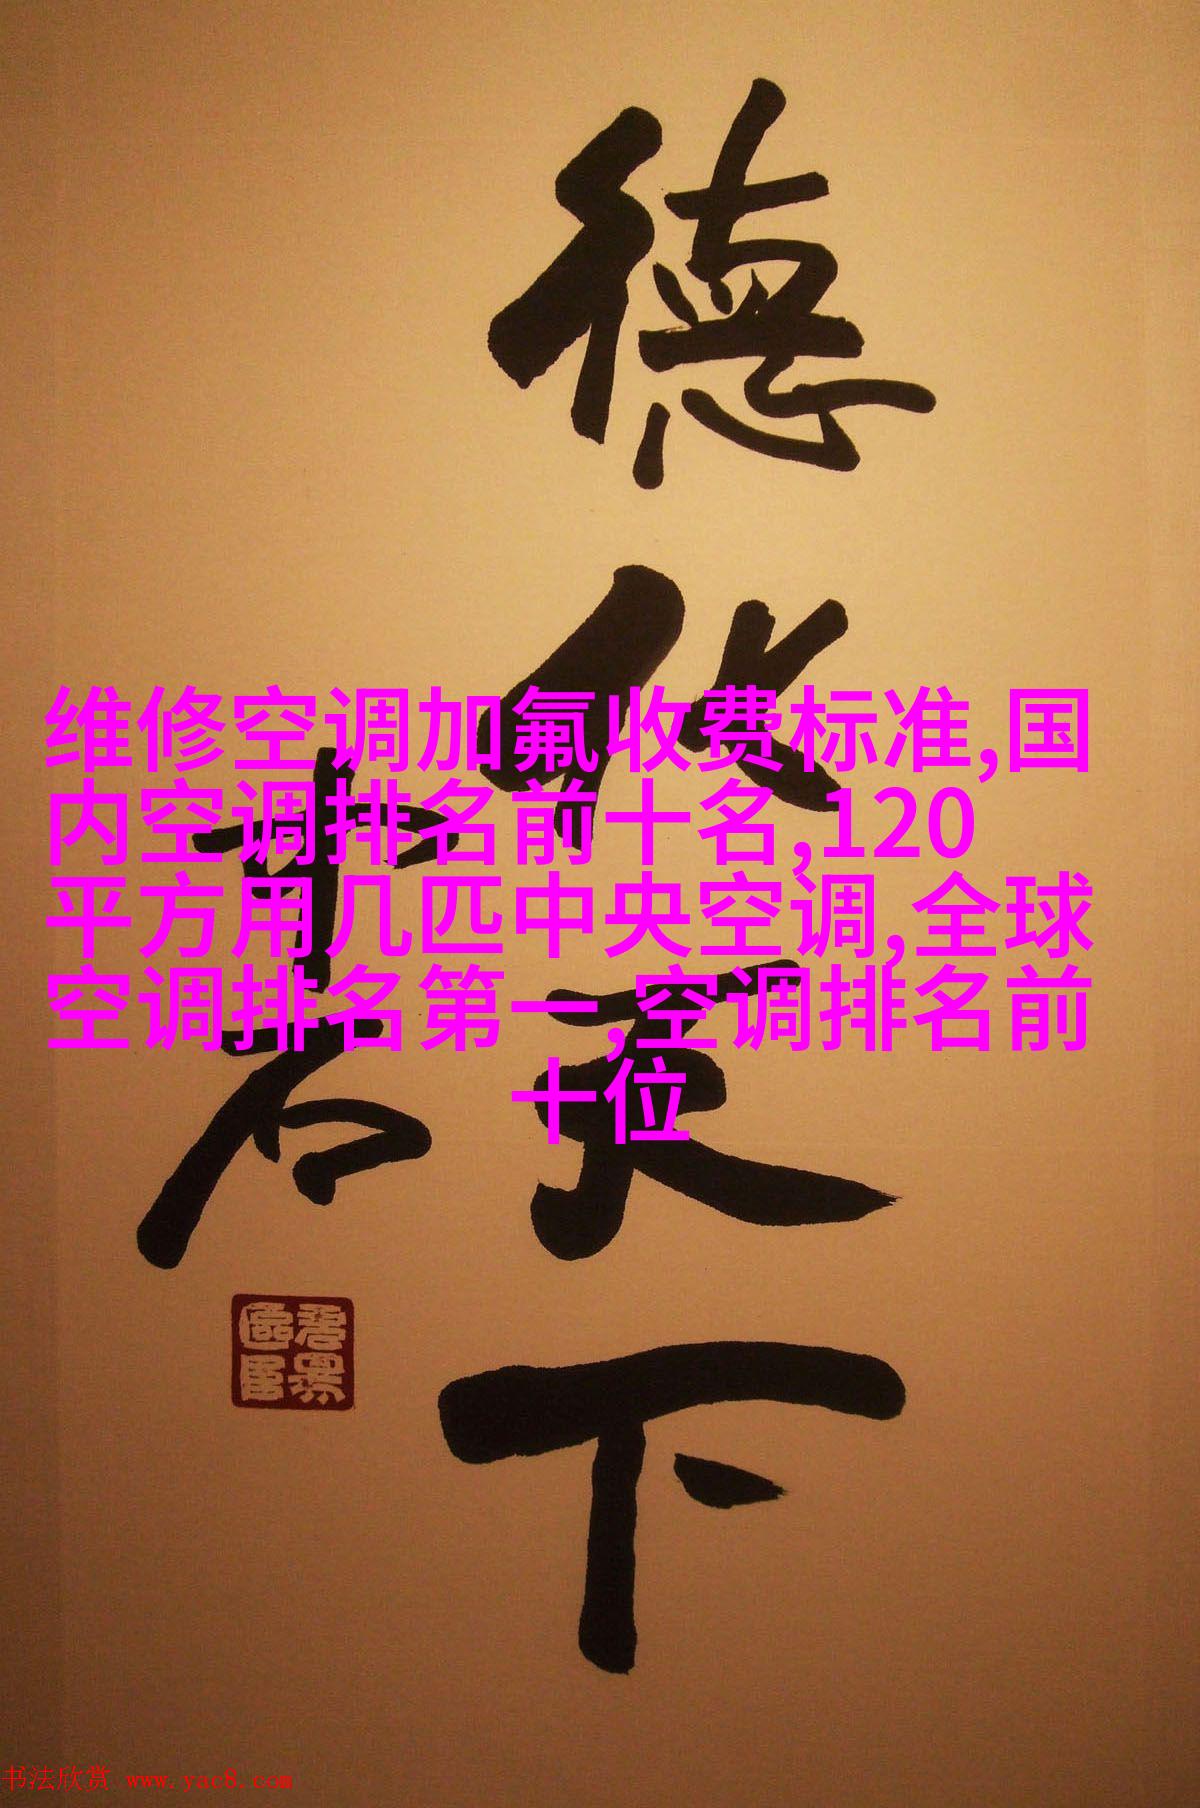 德化天下
本石
维修空调加氟收费标准,国
内空调排名前十名,120
平方用几匹中央空调,全球
空调排名第一,空调排名前
十位
书法欣赏 www.yac8.com